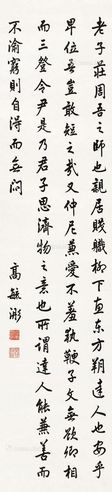 老子莊周吾之師也親居賤職柳下直東方朔達人也安乎
卑位吾豈敢短之哉又仲尼兼愛不羞執鞭子文無欲卿相
而三登令尹是乃君子思濟物之意也所謂達人能兼善而
不渝窮則自得而無悶
高毓浵